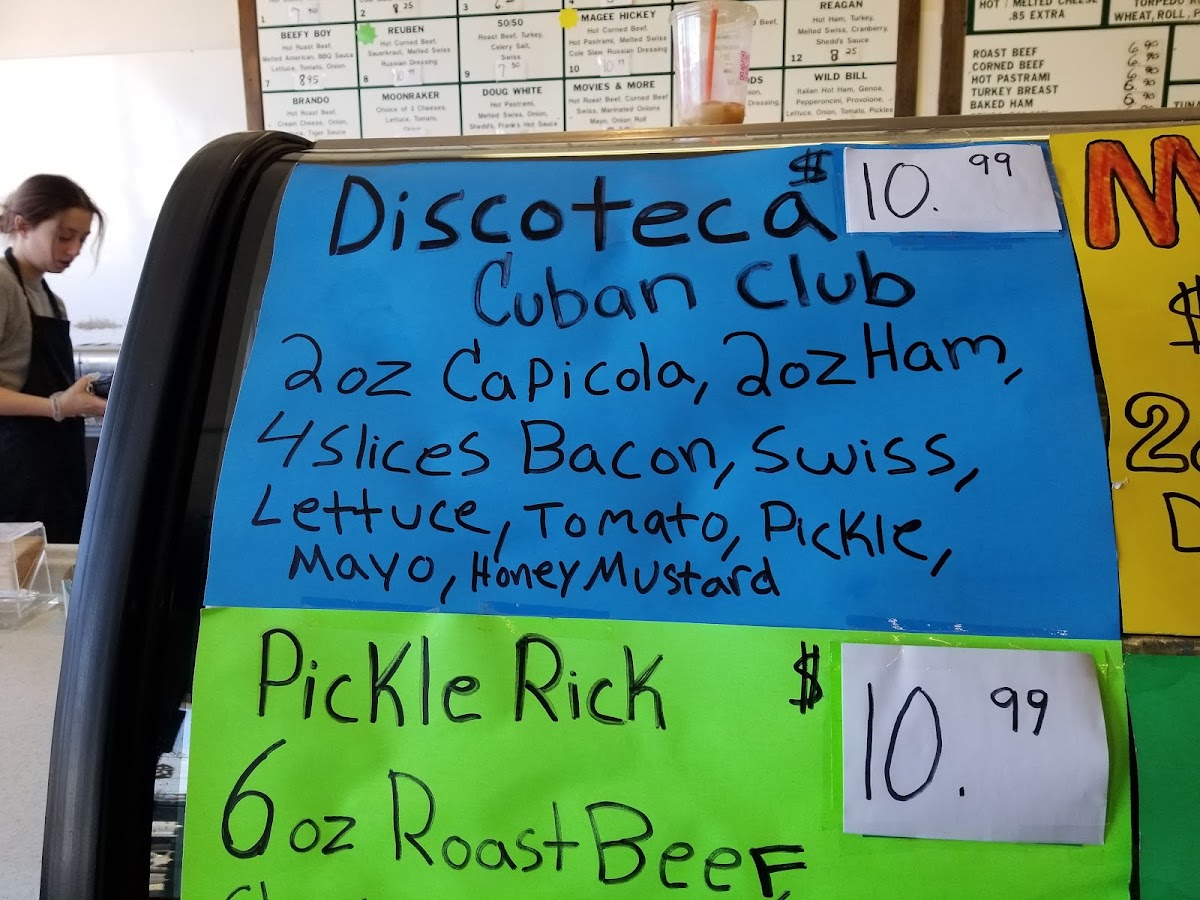 1 7 90
2 8 25
3
4
REAGAN
BEEFY BOY
Hot Roast Beef,
Melted American, BBQ Sauce
Lettuce, Tomato, Onion
7 8 95
REUBEN
Hot Corned Beef,
Sauerkraut, Melted Swiss
Russian Dressing
8
50/50
Roast Beef, Turkey,
Celery Salt,
Swiss
9 7 50
MAGEE HICKEY
Hot Corned Beef,
Hot Pastrami, Melted Swiss
Cole Slaw Russian Dressing
10
Hot Ham, Turkey,
Melted Swiss, Cranberry,
Shedd's Sauce
12 8 25
BRANDO
Hot Roast Beef,
Cream Cheese, Onion,
Tiger Sauce
MOONRAKER
Choice of 3 Cheeses,
Lettuce, Tomato,
Onion
DOUG WHITE
Hot Pastrami,
Melted Swiss, Onion,
Shedd's, Frank's Hot Sauce
MOVIES & MORE
Hot Roast Beef, Corned Beef
Swiss, Marinated Onions
Mayo, Onion Roll
WILD BILL
Italian Hot Ham, Genoa,
Pepperoncini, Provolone,
Lettuce, Onion, Tomato, Pickles
HOT / MELTED CHEESE
.85 EXTRA
WHEAT, ROLL, P
ROAST BEEF 6.90
CORNED BEEF 6.90
HOT PASTRAMI 6.90
TURKEY BREAST 6.90
BAKED HAM 6.90
Discoteca $10.99
Cuban Club
2oz Capicola, 2oz Ham,
4 Slices Bacon, Swiss,
Lettuce, Tomato, Pickle,
Mayo, Honey Mustard
Pickle Rick $10.99
6oz Roast Beef,
M
$
2
D